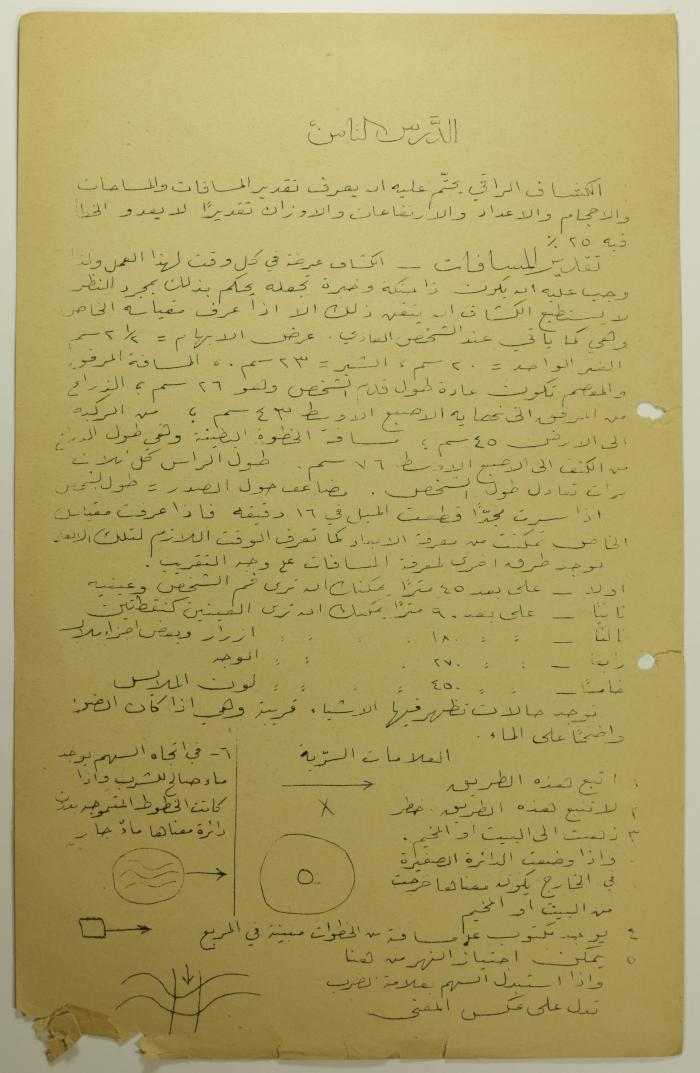 الدَّرس الثامن
الكشاف الراقي يحتّم عليه ان يعرف تقدير المسافات والمساحات
والاحجام والاعداد والارتفاعات والاوزان تقديرًا لا يعدو الخطأ
فيه ٢٥ ٪
تقدير المسافات — الكشاف عرضة في كل وقت لهذا العمل ولذا
وجب عليه ان يكون ذا حنكة وخبرة تجعله يحكم بذلك بمجرد النظر
لا يستطيع الكشاف ان يتقن ذلك الا اذا عرف مقياسه الخاص
وهي كما يأتي عند الشخص العادي. عرض الابهام = ٢ ١/٢ سم
الفتر الواحد = ٢٠ سم، الشبر = ٢٣ سم.، المسافة المرفق
والمعصم تكون عادة طول قدم الشخص وهو ٢٦ سم، الذراع
من المرفق الى نهاية الاصبع الاوسط ٤٣ سم، من الركبة
الى الارض ٤٥ سم، مسافة الخطوة البطيئة وهي طول الذراع
من الكتف الى الاصبع الاوسط ٧٦ سم. طول الراس كل ثلاث
مرات تعادل طول الشخص. مضاعف حول الصدر = طول الشخص
اذا سرت مجدًّا قطعت الميل في ١٦ دقيقة فاذا عرفت مقياسك
الخاص تمكنت من معرفة الابعاد كما تعرف الوقت اللازم لتلك الابعاد
توجد طرق اخرى لمعرفة المسافات على وجه التقريب.
اولا — على بعد ٤٥ مترًا يمكنك ان ترى فم الشخص وعينيه
ثانيًا — على بعد ٩٠ مترًا يمكنك ان ترى العينين كنقطتين
ثالثًا — " " ١٨٠ " " " ازرار وبعض اجزاء ملابس
رابعًا — " " ٢٧٠ " " " الوجه
خامسًا — " " ٤٥٠ " " " لون الملابس
توجد حالات تظهر فيها الاشياء قريبة وهي اذا كان الضوء
واضحًا على الماء.
العلامات السرّية
١ اتبع هذه الطريق
٢ لا تتبع هذه الطريق. خطر
٣ ذهبت الى البيت او المخيم.
واذا وضعت الدائرة الصغيرة
في الخارج يكون معناها خرجت
من البيت او المخيم
٤ يوجد مكتوب على مسافة من الخطوات مبينة في المربع
٥ يمكن اجتياز النهر من هنا
واذا استبدل السهم بعلامة الضرب
تدل على عكس المعنى
٦- في اتجاه السهم يوجد
ماء صالح للشرب واذا
كانت الخطوط المتموجة بدون
دائرة معناها ماء جار